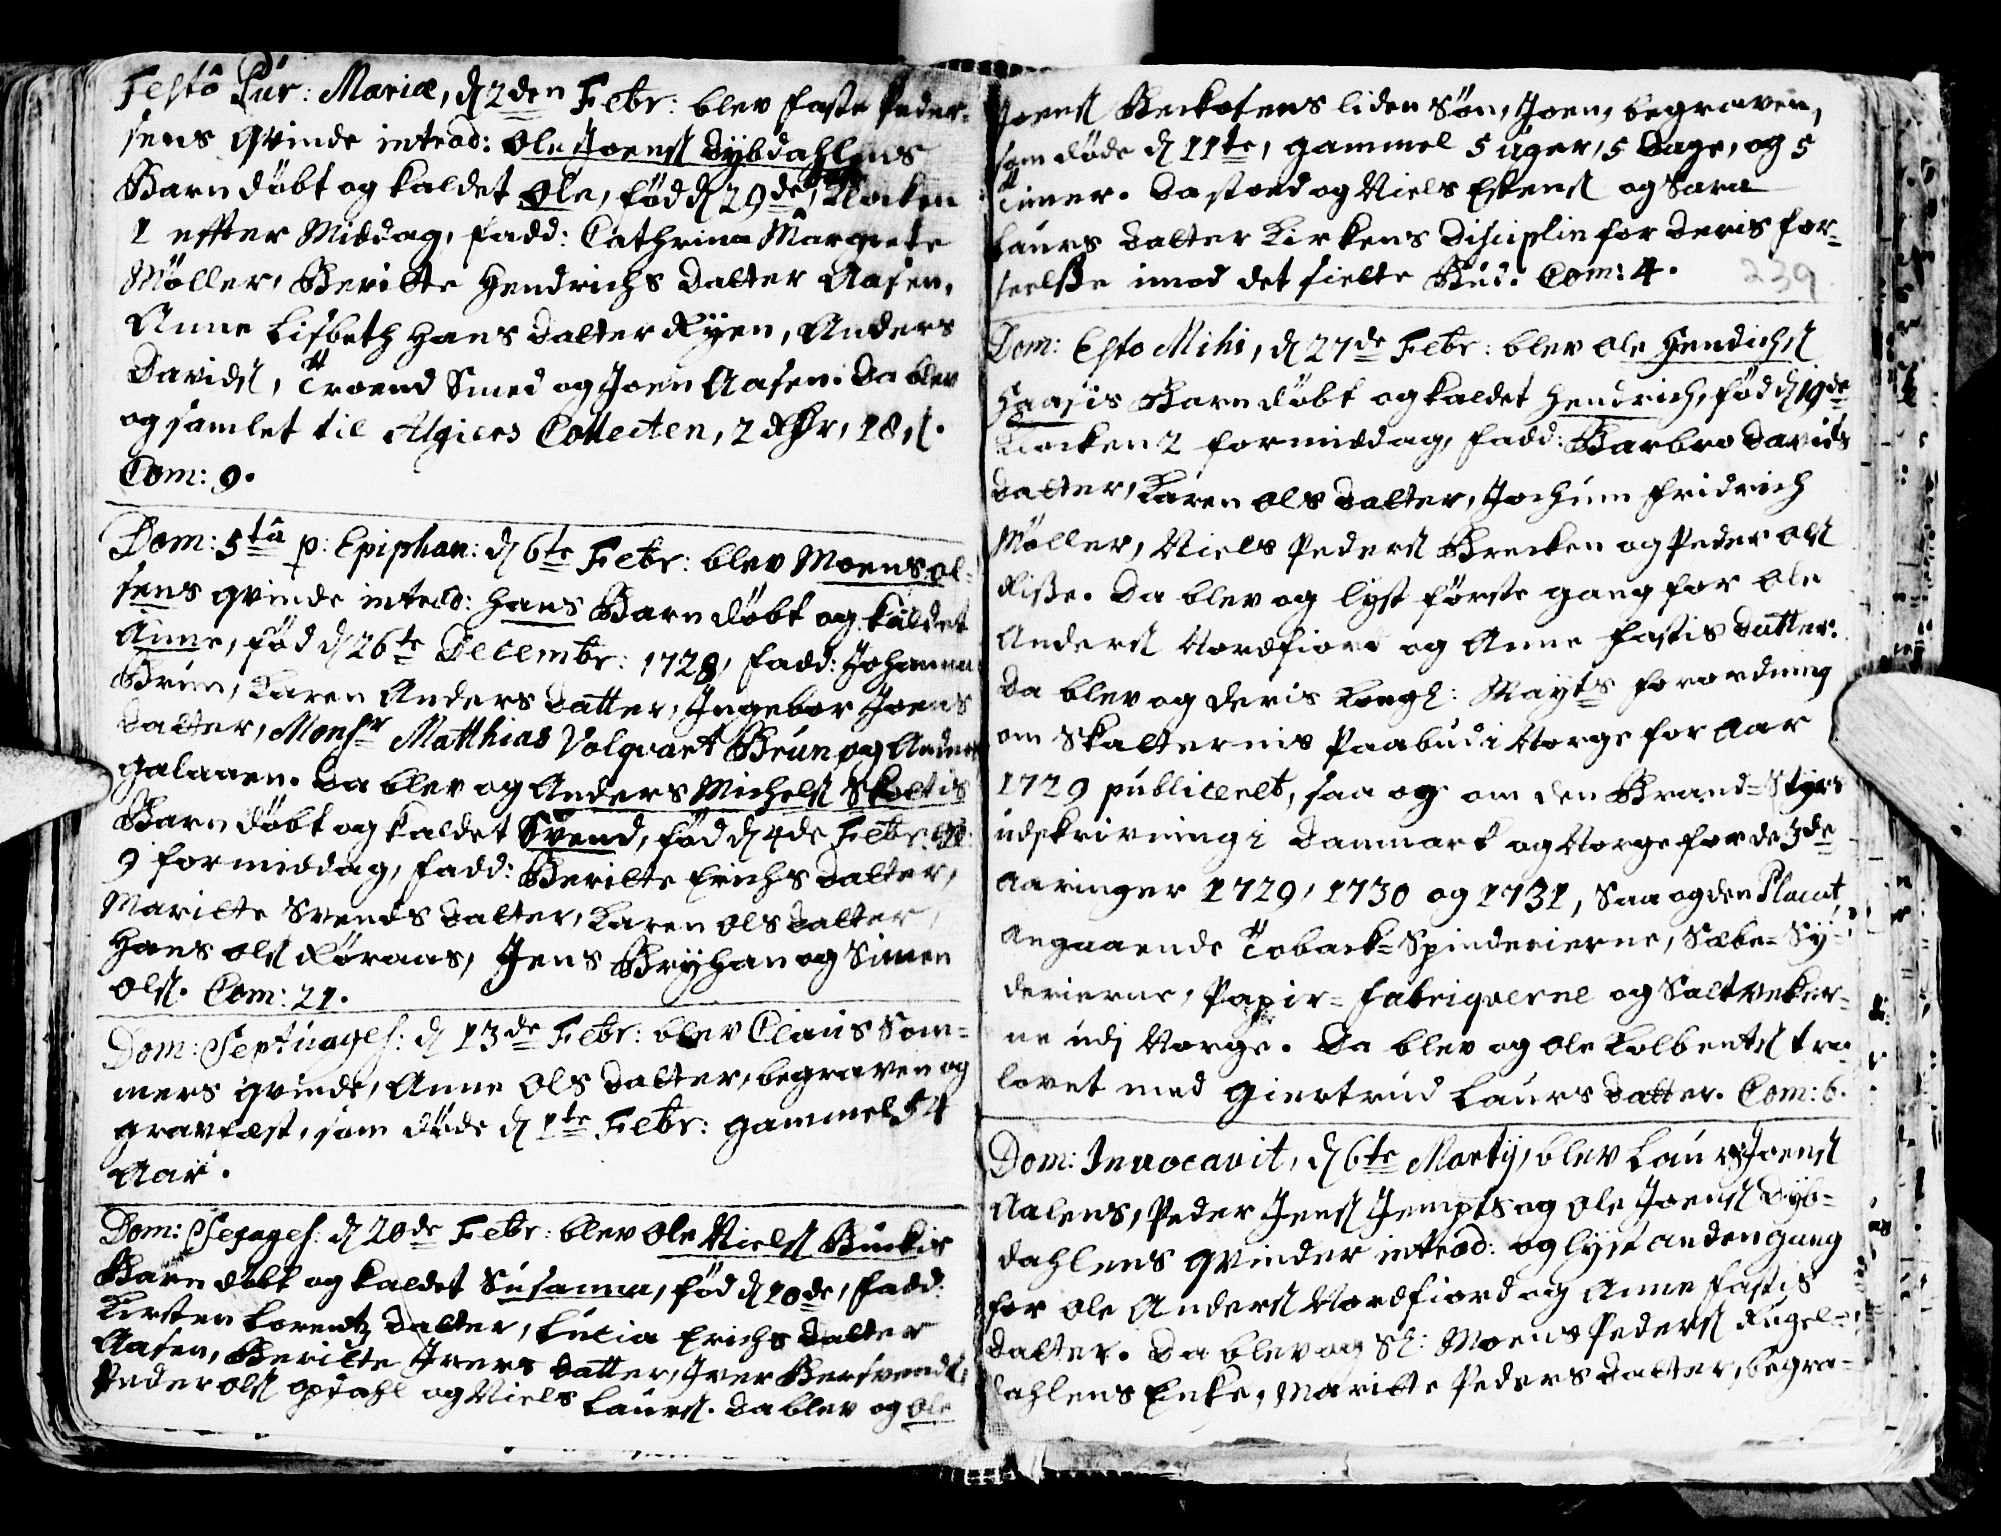 Festo Pur: Mariæ, d 2den Febr: blev Faste Peder-
sens Qvinde introd: Ole Joens Dybdahlens
Barn døbt og kaldet Ole, fød d 29de, Klocken
1 effter Middag, fadd: Cathrina Margrete
Møller, Beritte Hendrichs Datter Aasen,
Anne Lisbeth Hans Datter Ryen, Anders
Davids, Troend Smed og Joen Aasen. Da blev
og samlet til Algiers Collecten, 2 Rdr, 18 s.
Com: 9.
Dom: 5ta p: Epiphan: d 6te Febr: blev Moens Ol-
sens qvinde introd: hans Barn døbt og kaldet
Anne, fød d 26te Decembr: 1728, fadd: Johanna
Brun, Karen Anders Datter, Ingebor Joens
Datter, Monsr Matthias Volqvart Brun og Anders
Galaaen. Da blev og Anders Michels Skottis
Barn døbt og kaldet Svend, fød d 4de Febr: Kl:
9 formiddag, fadd: Beritte Erichs Datter,
Maritte Svends Datter, Karen Ols Datter,
Hans Ols Røraas, Jens Bryhan og Simen
Ols. Com: 21.
Dom: Septuages: d 13de Febr: blev Claus Som-
mers qvinde, Anne Ols Datter, begraven og
gravfæst, som døde d 1te Febr: gammel 54
Aar.
Dom: Sexages: d 20de Febr: blev Ole Niels Buckis
Barn døbt og kaldet Susanna, fød d 10de, fadd:
Kirsten Lorentz Datter, Lucia Erichs Datter
Aasen, Beritte Ivers Datter, Iver Bersvends,
Peder Ols Opdahl og Niels Laurs. Da blev og Ole
Joens Beckosens liden Søn, Joen, begraven,
som døde d 11te, gammel 5 uger, 5 Dage, og 5
Timer. Da stoed og Niels Estens og Sara
Laurs Datter Kirkens Disciplin for deris for-
seelse imod det siette Bud. Com: 4.
239
Dom: Esto Mihi, d 27de Febr: blev Ole Hendichs
Haasis Barn døbt og kaldet Hendrich, fød d 19de
Klocken 2 formiddag, fadd: Barbro Davids
Datter, Karen Ols Datter, Jochum Fridrich
Møller, Niels Peders Brecken og Peder Ols
Risse. Da blev og lyst første gang for Ole
Anders Nordfiord og Anne Fastis Datter.
Da blev og deris Kongl: Mayts forordning
om Skatternis Paabud i Norge for Aar
1729 publiceret, saa og om den Brand-Styrs
udskrivning i Danmark og Norge for de 3de
aaringer 1729, 1730 og 1731, Saa og den Placat
angaaende Toback-Spinderierne, Sæbe-Sy-
derierne, Papir-Fabriqverne og Saltverker-
ne udj Norge. Da blev og Ole Kolbents tro-
lovet med Giertrud Laurs Datter. Com: 6.
Dom: Invocavit, d 6te Martij, blev Laurs Joens
Aalens, Peder Jens Jempts og Ole Joens Dyb-
dahlens qvinder introd: og lyst anden gang
for Ole Anders Nordfiord og Anne Fastis
Datter. Da blev og Sl: Moens Peders Rugel-
dahlens Enke, Maritte Peders Datter, begra-